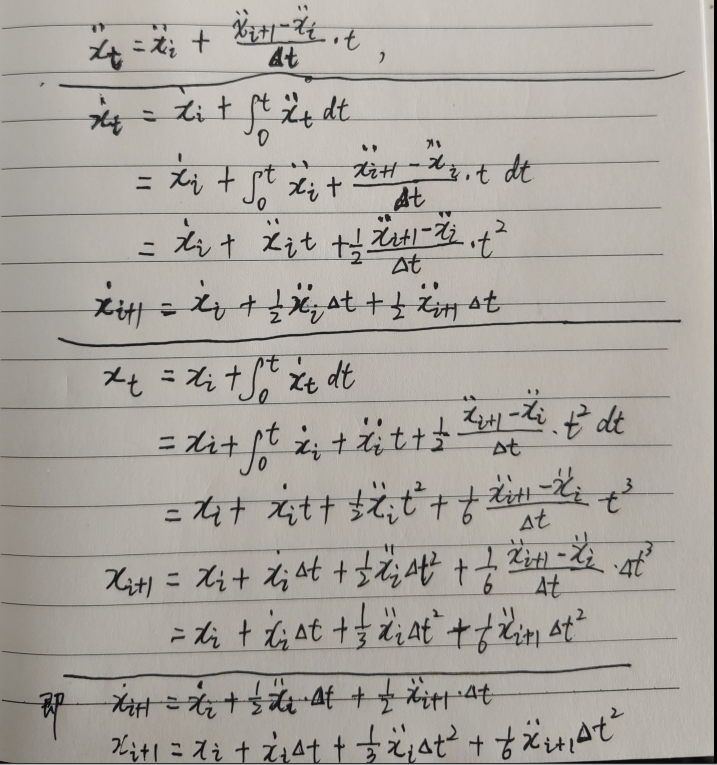 ẍ_t = ẍ_i + (ẍ_{i+1} - ẍ_i)/Δt · t ,
ẋ_t = ẋ_i + ∫_0^t ẍ_t dt
= ẋ_i + ∫_0^t ẍ_i + (ẍ_{i+1} - ẍ_i)/Δt · t dt
= ẋ_i + ẍ_i t + 1/2 (ẍ_{i+1} - ẍ_i)/Δt · t²
ẋ_{i+1} = ẋ_i + 1/2 ẍ_i Δt + 1/2 ẍ_{i+1} Δt
x_t = x_i + ∫_0^t ẋ_t dt
= x_i + ∫_0^t ẋ_i + ẍ_i t + 1/2 (ẍ_{i+1} - ẍ_i)/Δt · t² dt
= x_i + ẋ_i t + 1/2 ẍ_i t² + 1/6 (ẍ_{i+1} - ẍ_i)/Δt t³
x_{i+1} = x_i + ẋ_i Δt + 1/2 ẍ_i Δt² + 1/6 (ẍ_{i+1} - ẍ_i)/Δt · Δt³
= x_i + ẋ_i Δt + 1/3 ẍ_i Δt² + 1/6 ẍ_{i+1} Δt²
即 ẋ_{i+1} = ẋ_i + 1/2 ẍ_i · Δt + 1/2 ẍ_{i+1} · Δt
x_{i+1} = x_i + ẋ_i Δt + 1/3 ẍ_i Δt² + 1/6 ẍ_{i+1} Δt²